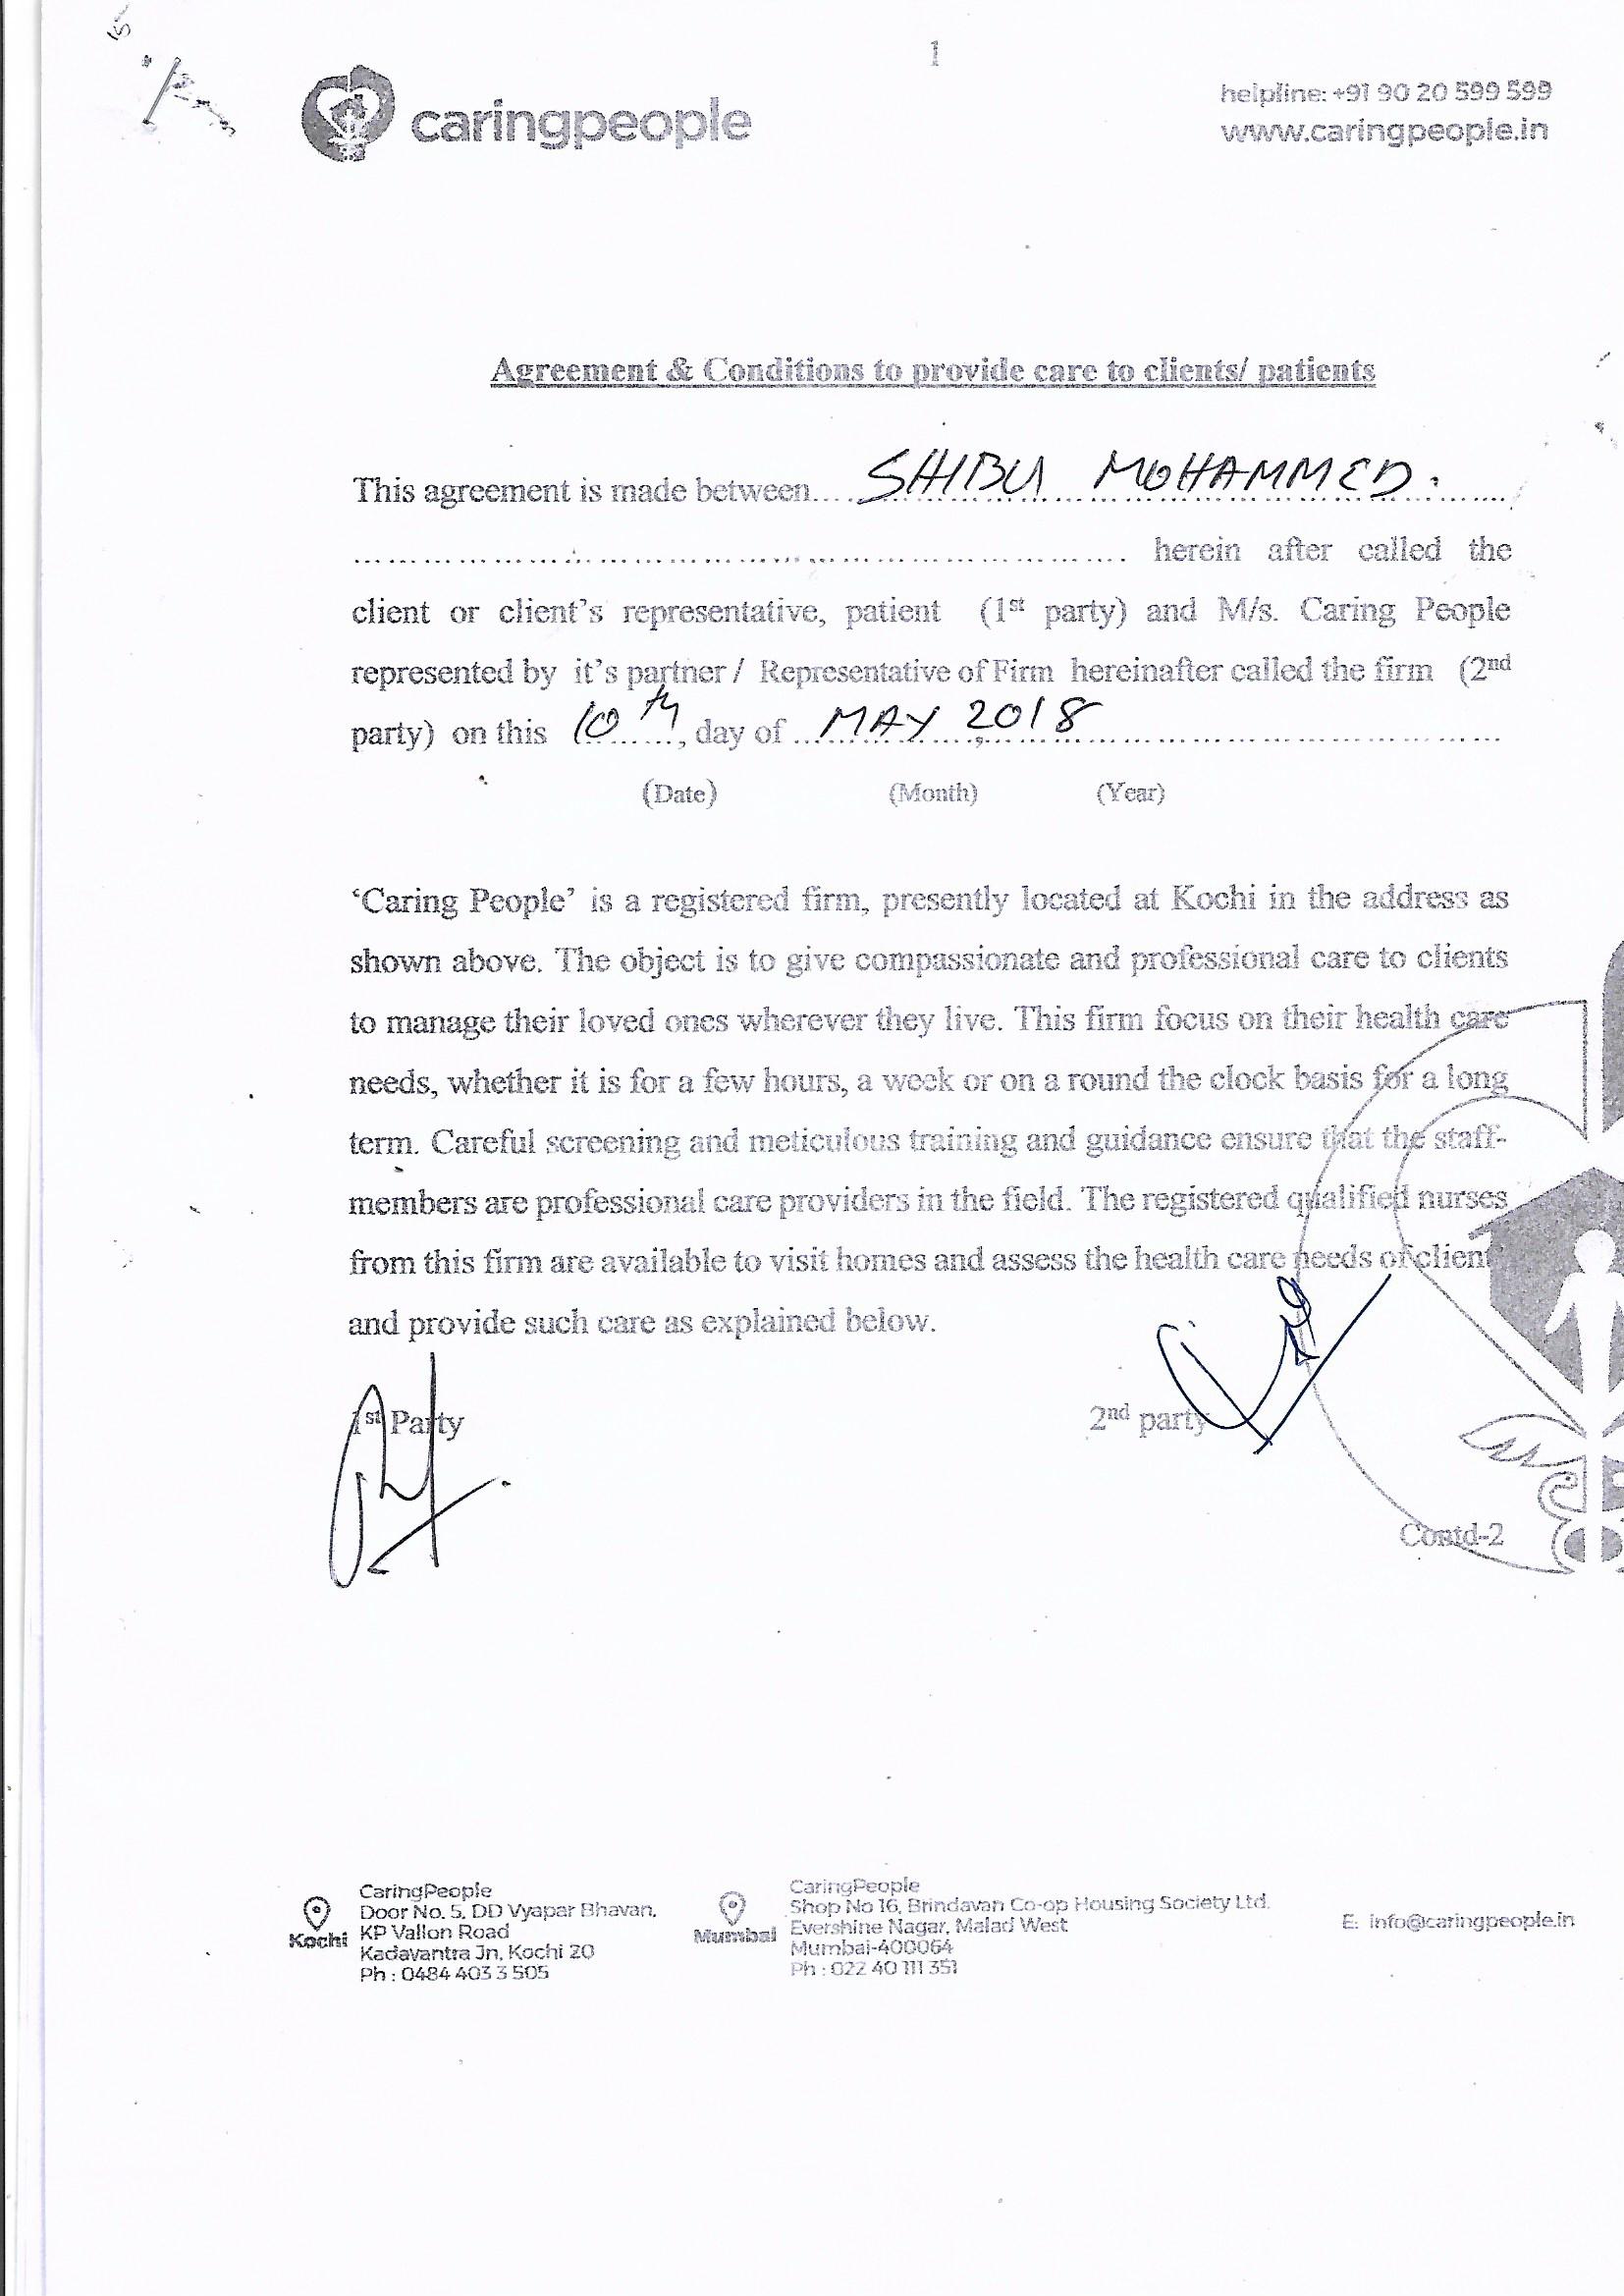 1
caringpeople
helpline: +91 90 20 599 599
www.caringpeople.in
Agreement & Conditions to provide care to clients/ patients
This agreement is made between.... SHIBU MOHAMMED. ....
.................................................................... herein after called the
client or client's representative, patient (1st party) and M/s. Caring People
represented by it's partner / Representative of Firm hereinafter called the firm (2nd
party) on this 10th, day of MAY 2018
(Date) (Month) (Year)
'Caring People' is a registered firm, presently located at Kochi in the address as
shown above. The object is to give compassionate and professional care to clients
to manage their loved ones wherever they live. This firm focus on their health care
needs, whether it is for a few hours, a week or on a round the clock basis for a long
term. Careful screening and meticulous training and guidance ensure that the staff-
members are professional care providers in the field. The registered qualified nurses
from this firm are available to visit homes and assess the health care needs of client
and provide such care as explained below.
1st Party 2nd party
Contd-2
Kochi
CaringPeople
Door No. 5, DD Vyapar Bhavan,
KP Vallon Road
Kadavantra Jn, Kochi 20
Ph : 0484 403 3 505
Mumbai
CaringPeople
Shop No 16, Brindavan Co-op Housing Society Ltd.
Evershine Nagar, Malad West
Mumbai-400064
Ph : 022 40 111 351
E: info@caringpeople.in